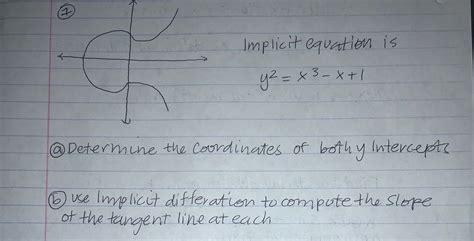 7
Implicit equation is
y² = x³ - x + 1
ⓐ Determine the coordinates of both y Intercepts
ⓑ use Implicit differation to compute the slope
of the tangent line at each